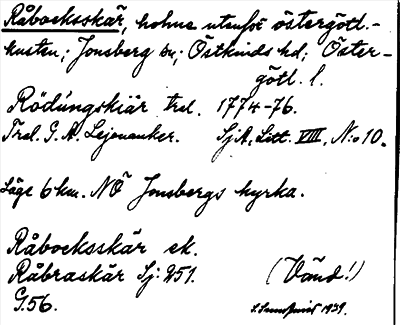 Råbocksskär, holme utanför östergötl.-
kusten; Jonsberg sn; Östkinds hd; Öster-
götl. l.
Rödungskiär trol. 1774-76.
Trol. G. A. Lejonanker. SjA, Litt. VIII, N:o 10.
Läge 6 km. NÖ Jonsbergs kyrka.
Råbocksskär ek.
Råbraskär Sj: 251.
G.56. (Vänd!)
1939.